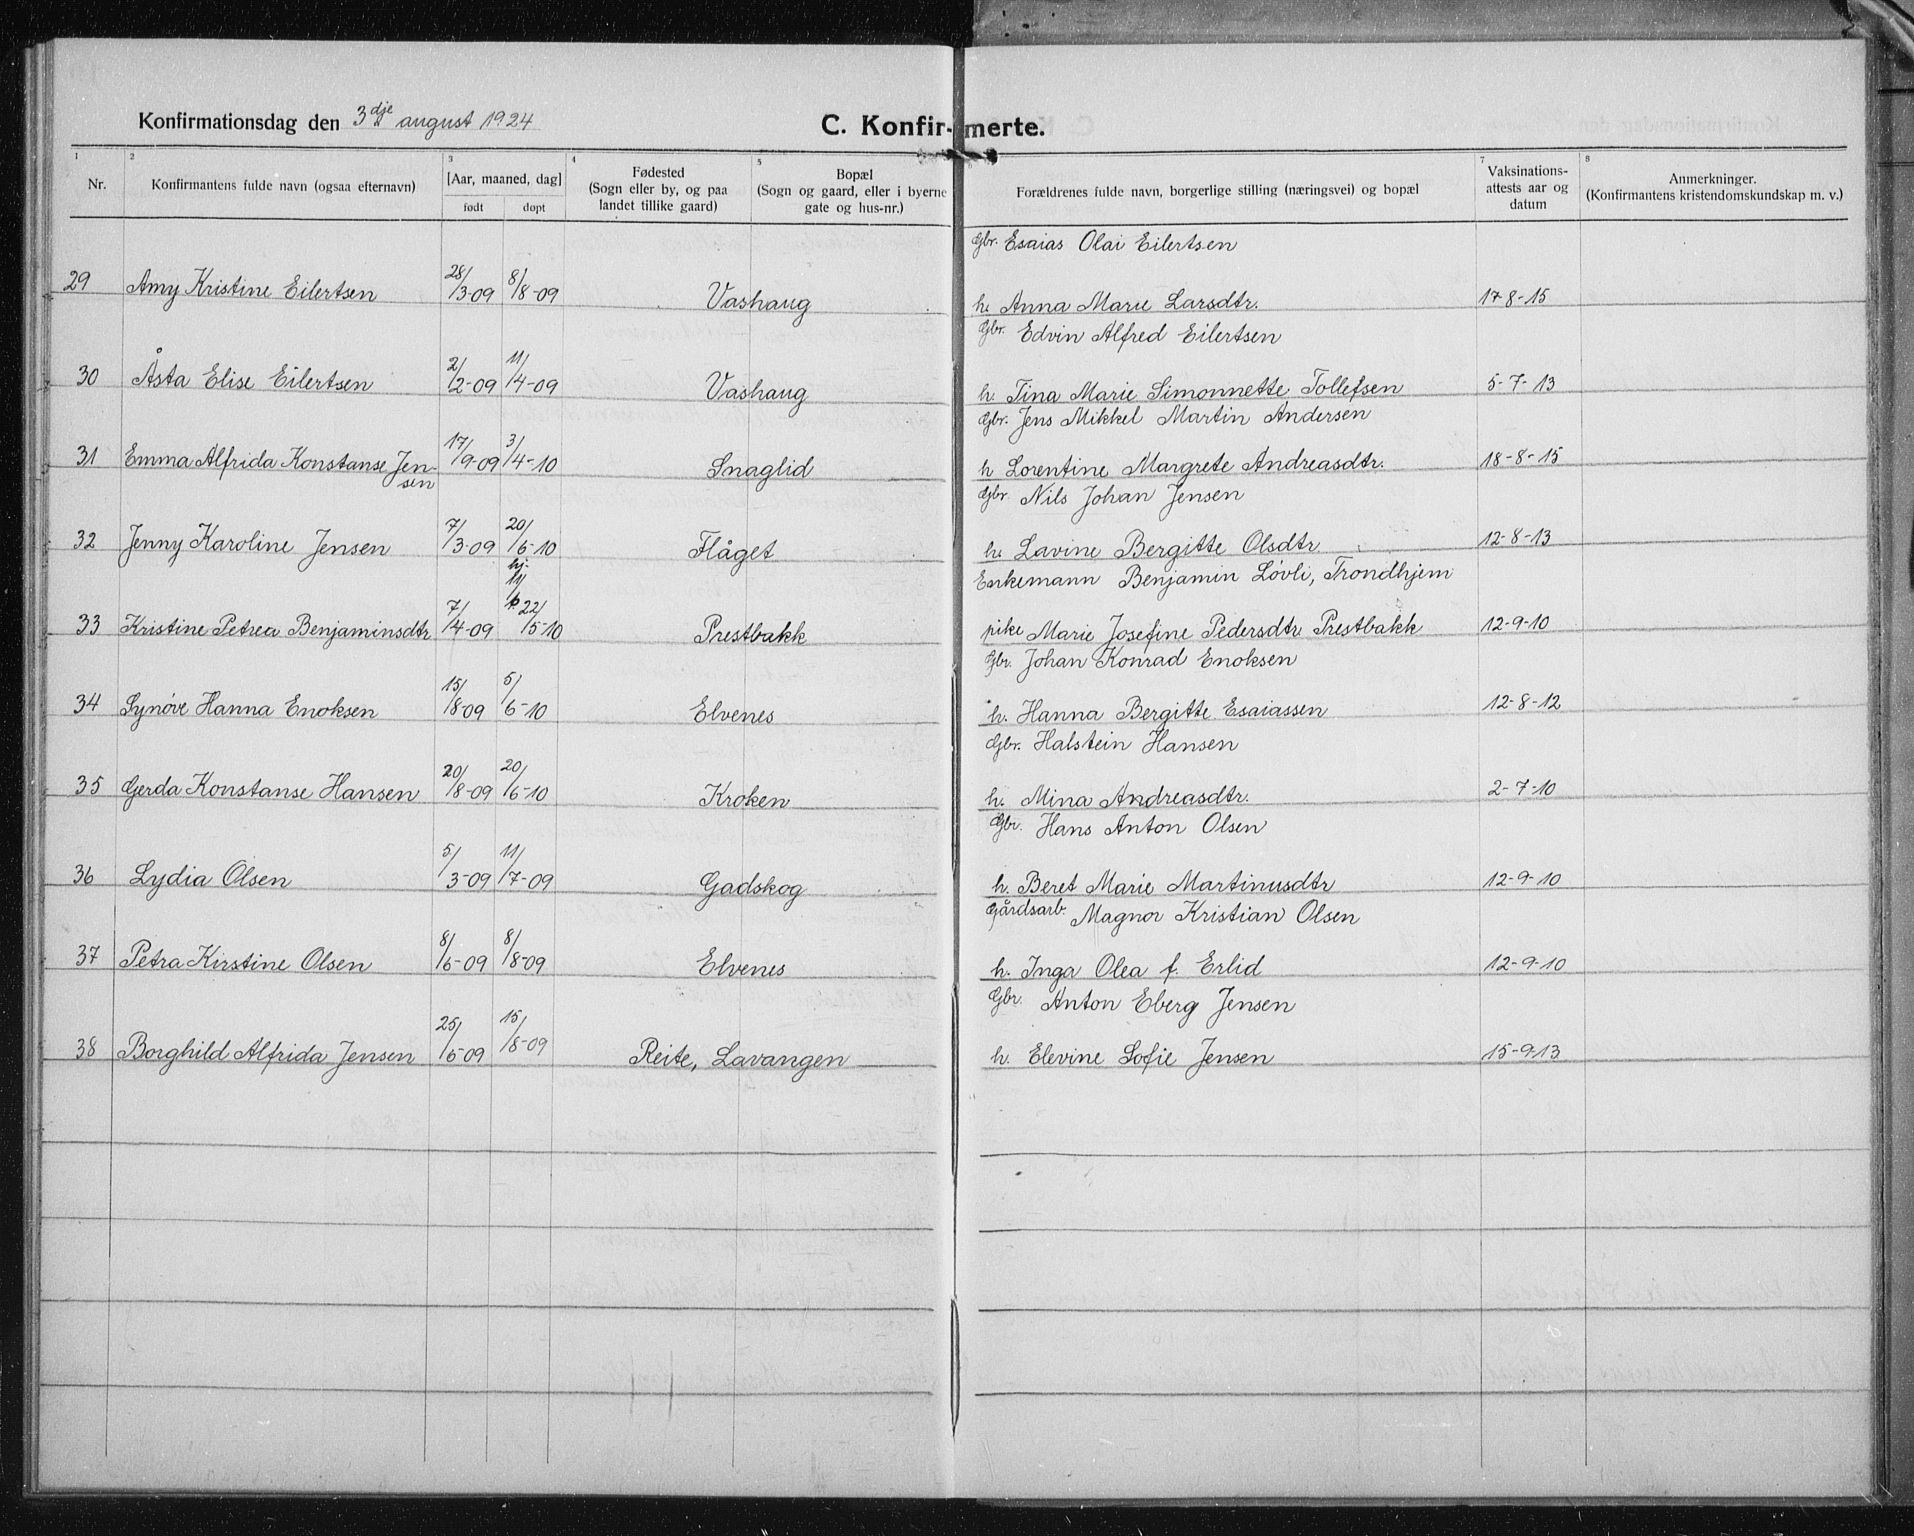 Konfirmationsdag den 3dje august 1924 C. Konfir-merte.
1 2 3 4 5 7 8
Nr. Konfirmantens fulde navn (ogsaa efternavn) [Aar, maaned, dag] født døpt Fødested (Sogn eller by, og paa landet tillike gaard) Bopæl (Sogn og gaard, eller i byerne gate og hus-nr.) Forældrenes fulde navn, borgerlige stilling (næringsvei) og bopæl Vaksinations-attests aar og datum Anmerkninger. (Konfirmantens kristendomskundskap m. v.)
Gbr. Esaias Olai Eilertsen
29 Amy Kristine Eilertsen 28/3-09 8/8-09 Vashaug h. Anna Marie Larsdtr. 17-8-15
Gbr. Edvin Alfred Eilertsen
30 Åsta Elise Eilertsen 2/2-09 11/4-09 Vashaug h. Tina Marie Simonnette Tollefsen 5-7-13
Gbr. Jens Mikkel Martin Andersen
31 Emma Alfrida Konstanse Jen-sen 17/9-09 3/4-10 Snaglid h Lorentine Margrete Andreasdtr. 18-8-15
Gbr. Nils Johan Jensen
32 Jenny Karoline Jensen 7/3-09 20/6-10 Flåget h. Lavine Bergitte Olsdtr 12-8-13
Enkemann Benjamin Løvli, Trondhjem
33 Kristine Petrea Benjaminsdtr 7/4-09 hj. 22/5-10 Prestbakk pike Marie Josefine Pedersdtr Prestbakk 12-9-10
Gbr. Johan Konrad Enoksen
34 Synøve Hanna Enoksen 15/8-09 5/6-10 Elvenes h. Hanna Bergitte Esaiassen 12-8-12
Gbr. Halstein Hansen
35 Gerda Konstanse Hansen 20/8-09 20/6-10 Kroken h. Mina Andreasdtr. 2-7-10
Gbr. Hans Anton Olsen
36 Lydia Olsen 5/3-09 11/7-09 Gadskog h. Beret Marie Martinusdtr 12-9-10
Gårdsarb. Magnor Kristian Olsen
37 Petra Kirstine Olsen 8/6-09 8/8-09 Elvenes h. Inga Olea f. Erlid 12-9-10
Gbr. Anton Eberg Jensen
38 Borghild Alfrida Jensen 25/6-09 15/8-09 Reite, Lavangen h. Elevine Sofie Jensen 15-9-13